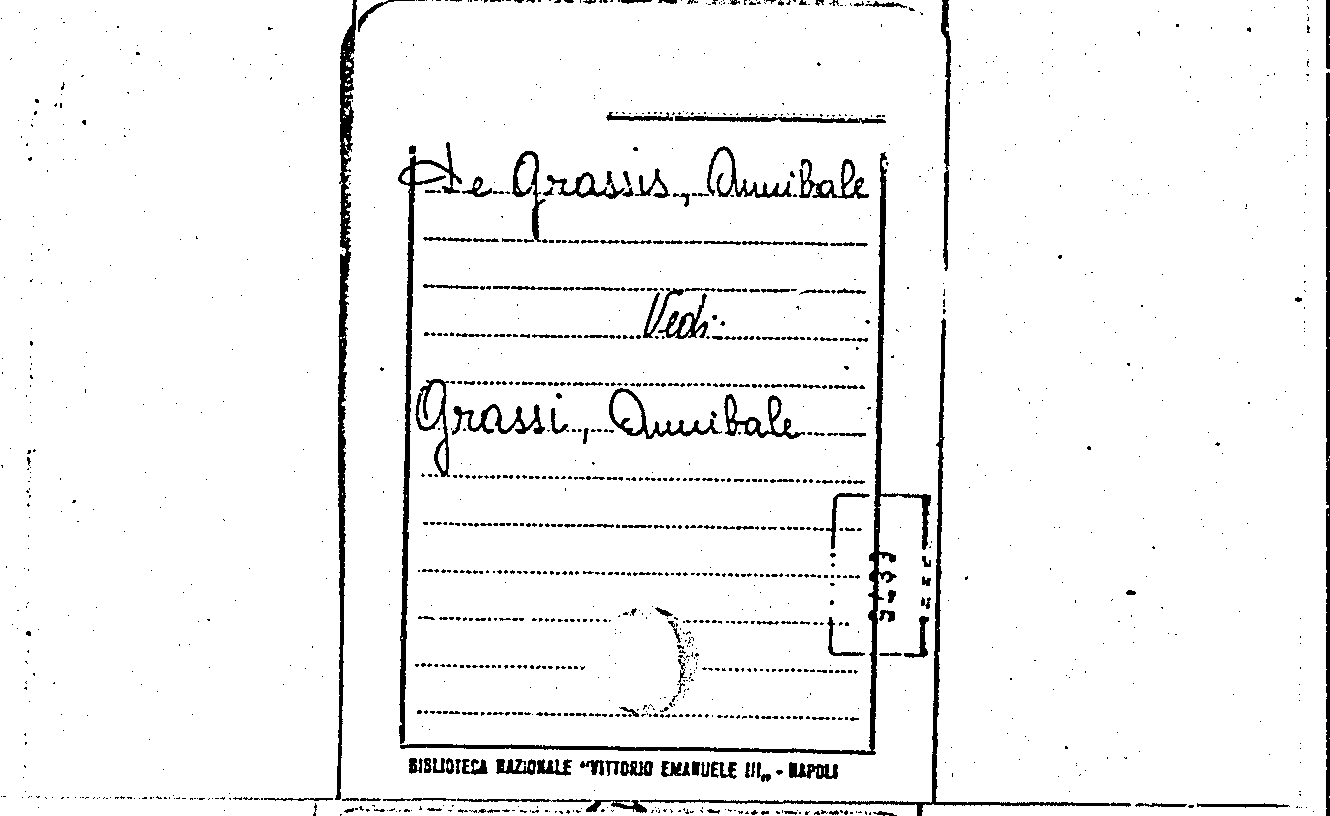 De Grassis, Annibale
Vedi:
Grassi, Annibale
BIBLIOTECA NAZIONALE "VITTORIO EMANUELE III„ - NAPOLI